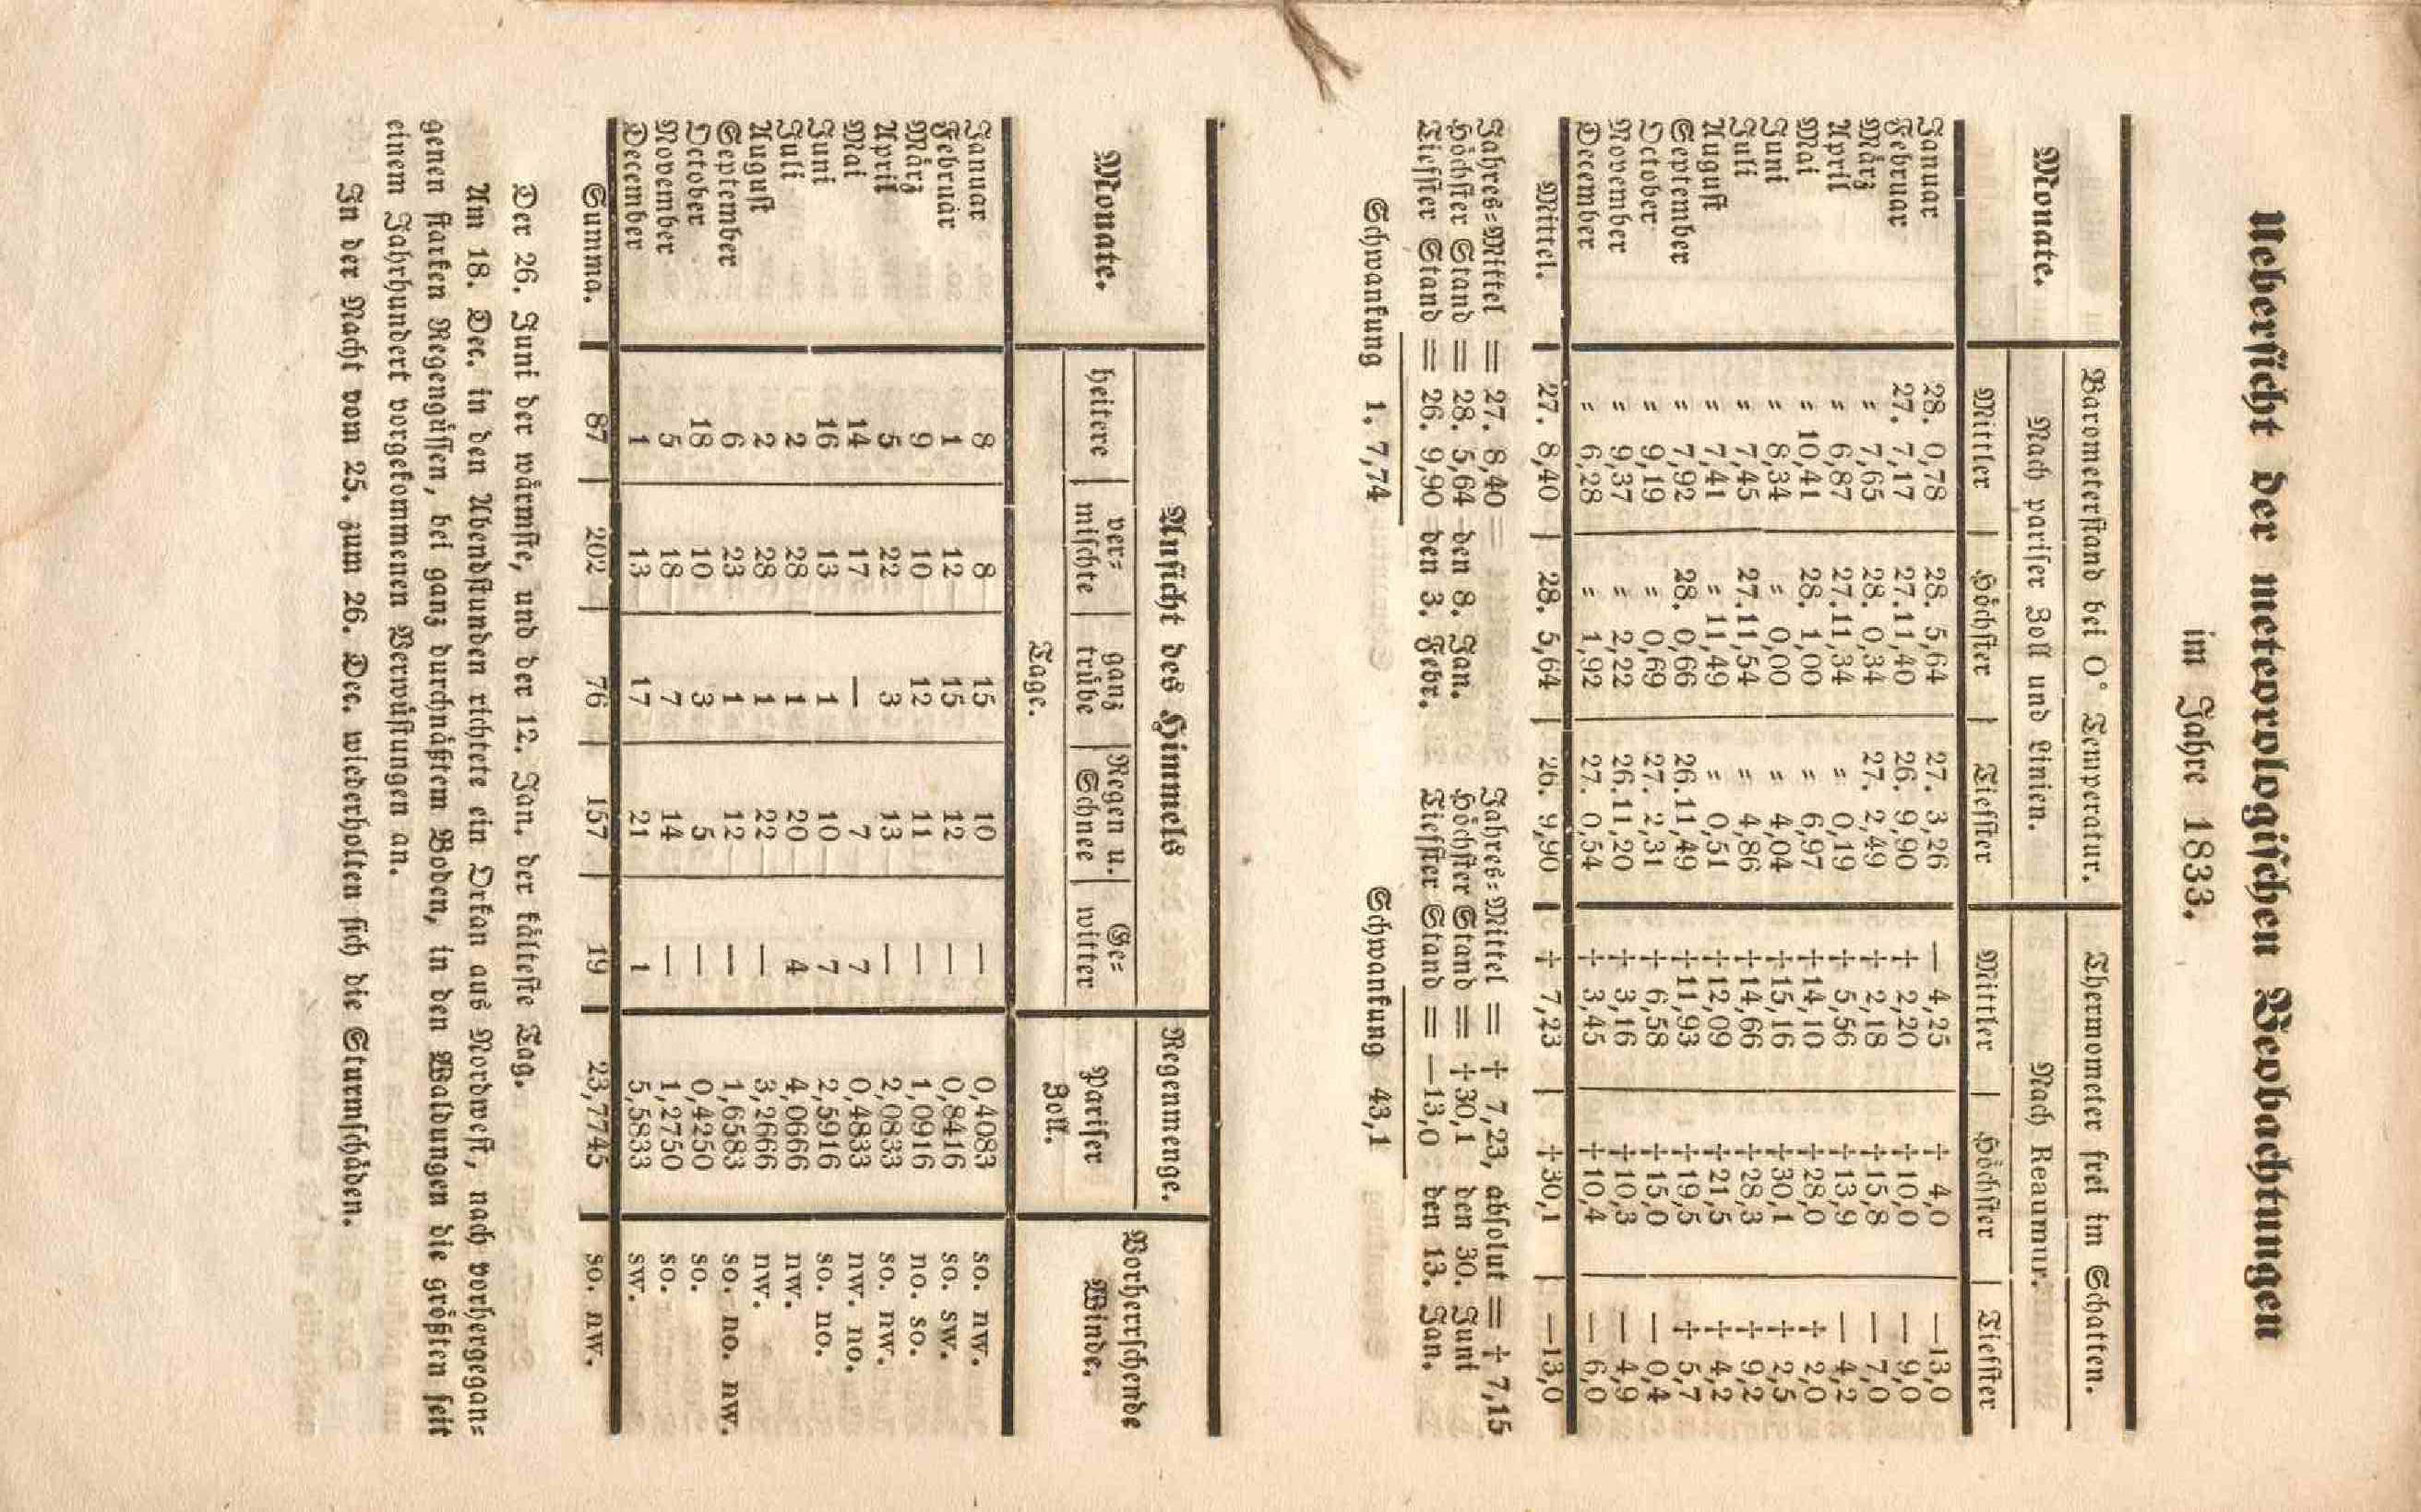 Uebersicht der meteorologischen Beobachtungen
im Jahre 1833.
Monate. Barometerstand bei 0° Temperatur. Thermometer frei im Schatten.
Nach pariser Zoll und Linien. Nach Reaumur.
Mittler Höchster Tiefster Mittler Höchster Tiefster
Januar 28. 0,78 28. 5,64 27. 3,26 — 4,25 + 4,0 —13,0
Februar 27. 7,17 27.11,40 26. 9,90 + 2,20 +10,0 — 9,0
März " 7,65 28. 0,34 27. 2,49 + 2,18 +15,8 — 7,0
April " 6,87 27.11,34 " 0,19 + 5,56 +13,9 — 4,2
Mai " 10,41 28. 1,00 " 6,97 +14,10 +28,0 + 2,0
Juni " 8,34 " 0,00 " 4,04 +15,16 +30,1 + 2,5
Juli " 7,45 27.11,54 " 4,86 +14,66 +28,3 + 9,2
August " 7,41 " 11,49 " 0,51 +12,09 +21,5 + 4,2
September " 7,92 28. 0,66 26.11,49 +11,93 +19,5 + 5,7
October " 9,19 " 0,69 27. 2,31 + 6,58 +15,0 — 0,4
November " 9,37 " 2,22 26.11,20 + 3,16 +10,3 — 4,9
December " 6,28 " 1,92 27. 0,54 + 3,45 +10,4 — 6,0
Mittel. 27. 8,40 28. 5,64 26. 9,90 + 7,23 +30,1 —13,0
Jahres=Mittel = 27. 8,40 Jahres=Mittel = + 7,23, absolut = + 7,15
Höchster Stand = 28. 5,64 den 8. Jan. Höchster Stand = +30,1 den 30. Juni
Tiefster Stand = 26. 9,90 den 3. Febr. Tiefster Stand = —13,0 den 13. Jan.
Schwankung 1. 7,74 Schwankung 43,1
Monate. Ansicht des Himmels Regenmenge. Vorherrschende Winde.
heitere ver= mischte ganz trübe Regen u. Schnee Ge= witter Pariser Zoll.
Tage.
Januar 8 8 15 10 — 0,4083 so. nw.
Februar 1 12 15 12 — 0,8416 so. sw.
März 9 10 12 11 — 1,0916 no. so.
April 5 22 3 13 — 2,0833 so. nw.
Mai 14 17 — 7 7 0,4833 nw. no.
Juni 16 13 1 10 7 2,5916 so. no.
Juli 2 28 1 20 4 4,0666 nw.
August 2 28 1 22 — 3,2666 nw.
September 6 23 1 12 — 1,6583 so. no. nw.
October 18 10 3 5 — 0,4250 so.
November 5 18 7 14 — 1,2750 so.
December 1 13 17 21 1 5,5833 sw.
Summa. 87 202 76 157 19 23,7745 so. nw.
Der 26. Juni der wärmste, und der 12. Jan. der kälteste Tag.
Am 18. Dec. in den Abendstunden richtete ein Orkan aus Nordwest, nach vorhergegan=
genen starken Regengüssen, bei ganz durchnäßtem Boden, in den Waldungen die größten seit
einem Jahrhundert vorgekommenen Verwüstungen an.
In der Nacht vom 25. zum 26. Dec. wiederholten sich die Sturmschäden.